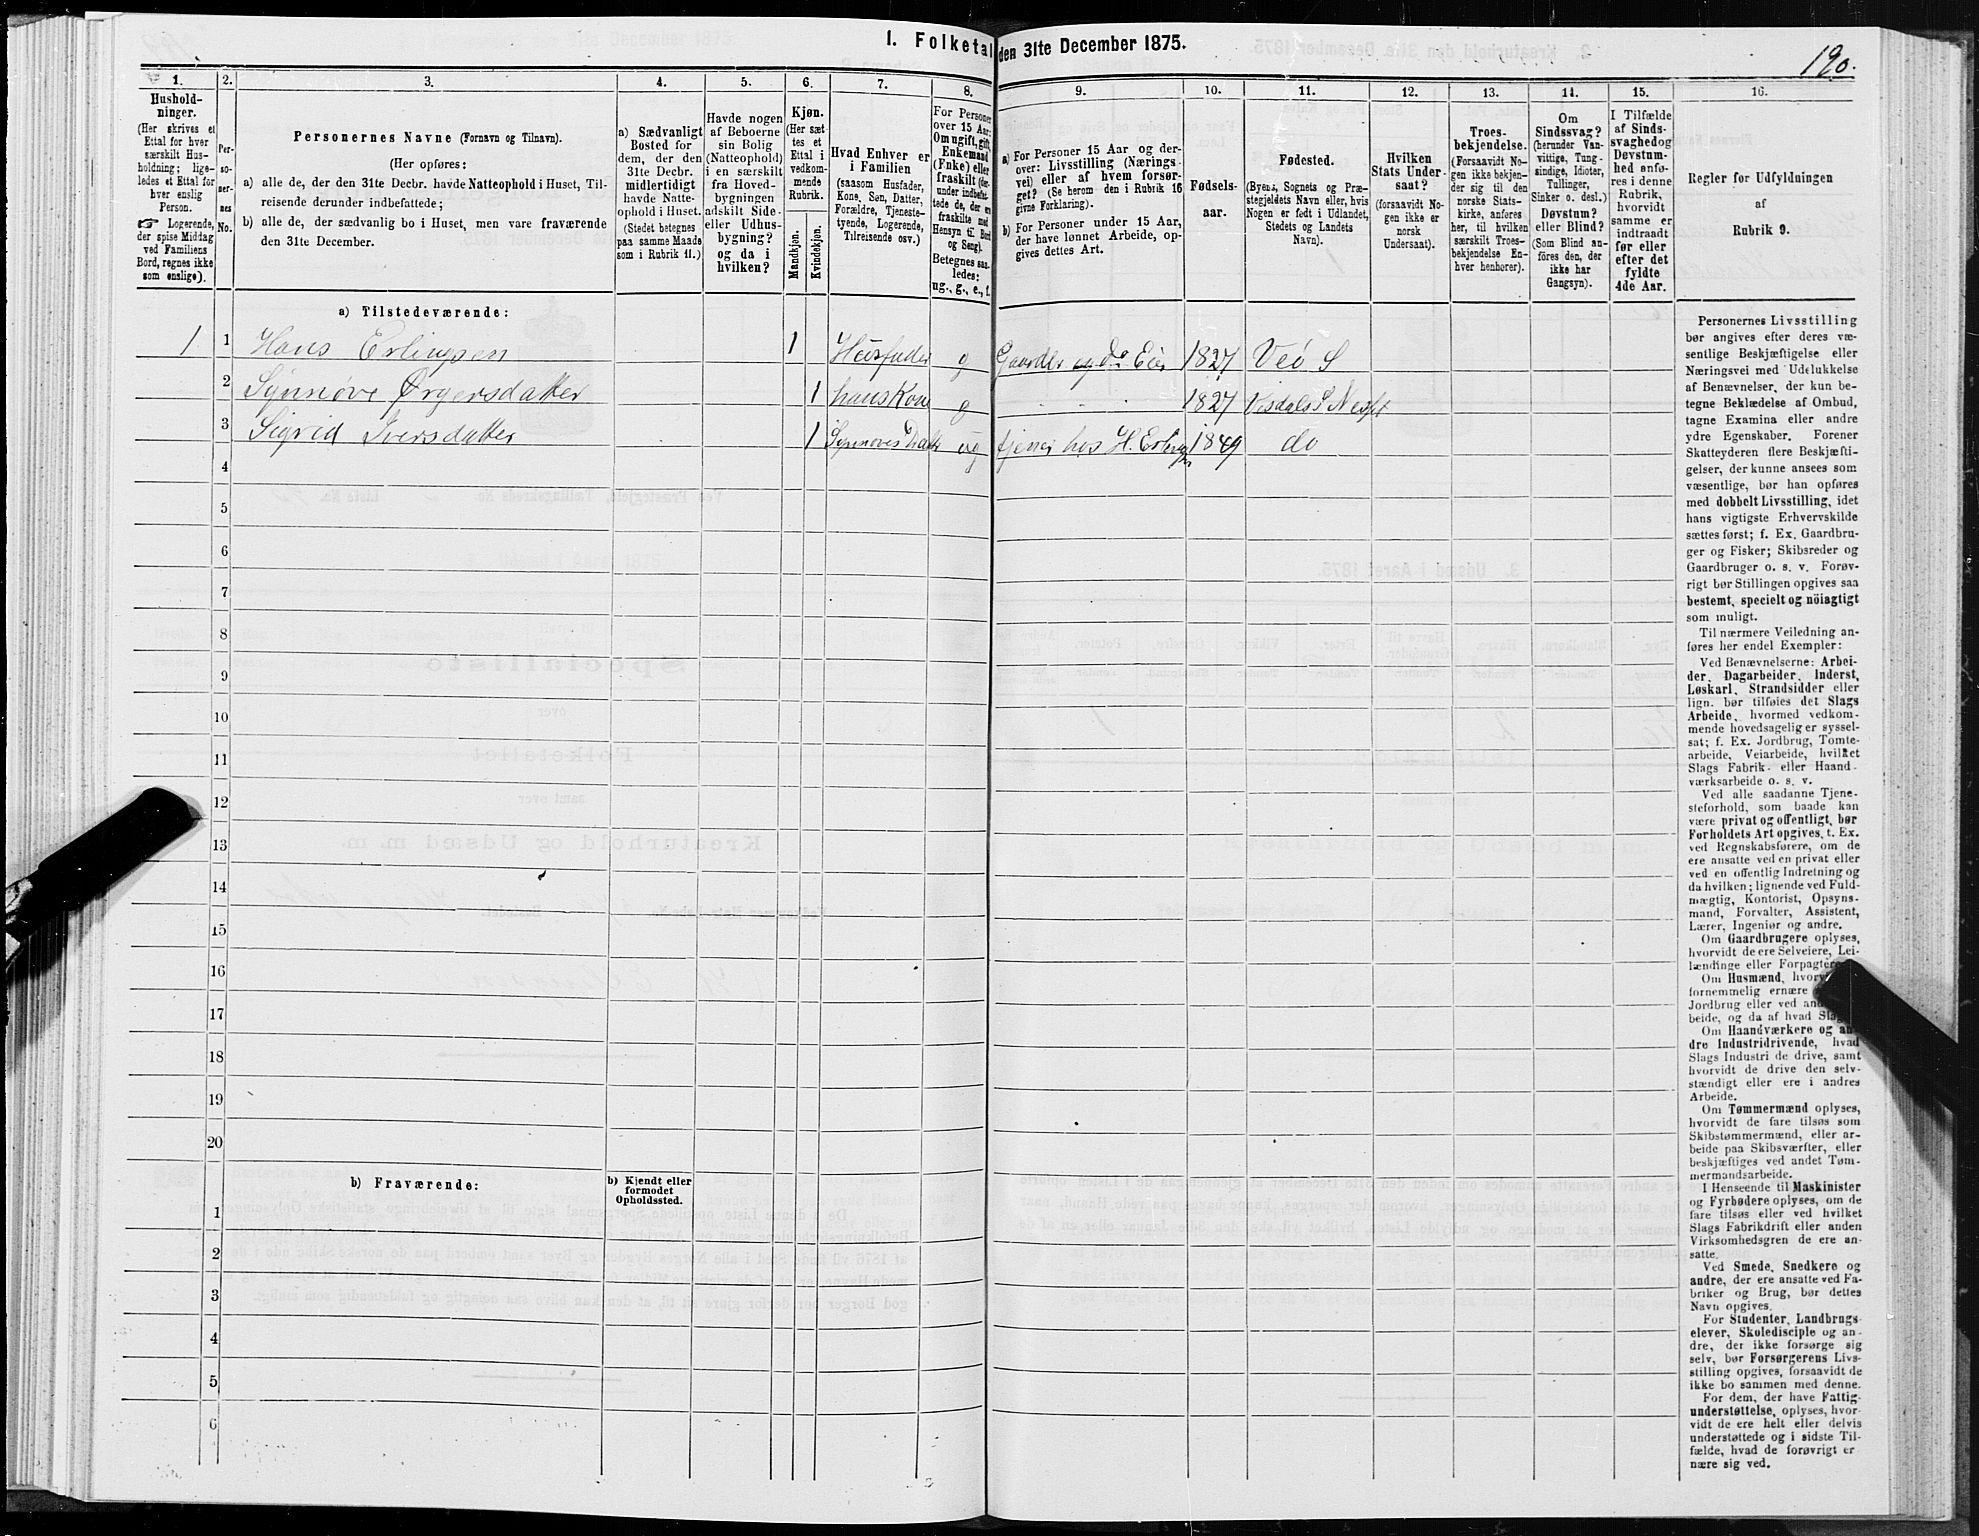 I. Folketal den 31te December 1875.
190.
1. 2. 3. 4. 5. 6. 7. 8. 9. 10. 11. 12. 13. 14. 15. 16.
Hushold-
ninger.
(Her skrives et
Ettal for hver
særskilt Hus-
holdning; lige-
ledes et Ettal for
hver enslig
Person.
☞ Logerende,
der spise Middag
ved Familiens
Bord, regnes ikke
som enslige).
Per-
so-
ner-
nes
No.
Personernes Navne (Fornavn og Tilnavn).
(Her opføres:
a) alle de, der den 31te Decbr. havde Natteophold i Huset, Til-
reisende derunder indbefattede;
b) alle de, der sædvanlig bo i Huset, men vare fraværende
den 31te December.
a) Sædvanligt
Bosted for
dem, der den
31te Decbr.
midlertidigt
havde Natte-
ophold i Huset.
(Stedet betegnes
paa samme Maade
som i Rubrik 11.)
Havde nogen
af Beboerne
sin Bolig
(Natteophold)
i en særskilt
fra Hoved-
bygningen
adskilt Side-
eller Udhus-
bygning?
og da i
hvilken?
Kjøn.
(Her sæt-
tes et
Ettal i
vedkom-
mende
Rubrik.
Mandkjøn.
Kvindekjøn.
Hvad Enhver er
i Familien
(saasom Husfader,
Kone, Søn, Datter,
Forældre, Tjeneste-
tyende, Logerende,
Tilreisende osv.)
For Personer
over 15 Aar:
Om ugift, gift,
Enkemand
(Enke) eller
fraskilt (der-
under indbefat-
tede de, der ere
fraskilte med
Hensyn til Bord
og Seng).
Betegnes saa-
ledes:
ug., g., e., f.
a) For Personer 15 Aar og der-
over: Livsstilling (Nærings-
vei) eller af hvem forsør-
get? (Se herom den i Rubrik 16
givne Forklaring).
b) For Personer under 15 Aar,
der have lønnet Arbeide, op-
gives dettes Art.
Fødsels-
aar.
Fødested.
(Byens, Sognets og Præ-
stegjeldets Navn eller, hvis
Nogen er født i Udlandet,
Stedets og Landets
Navn).
Hvilken
Stats Under-
saat?
(forsaavidt No-
gen ikke er
norsk
Undersaat).
Troes-
bekjendelse.
(Forsaavidt No-
gen ikke bekjen-
der sig til den
norske Stats-
kirke, anføres
her, til hvilken
særskilt Troes-
bekjendelse En-
hver henhører).
Om
Sindssvag?
(herunder Van-
vittige, Tung-
sindige, Idioter,
Tullinger,
Sinker o. desl.)
Døvstum?
eller Blind?
(Som Blind an-
føres den, der
ikke har
Gangsyn).
I Tilfælde
af Sinds-
svaghed og
Døvstum-
hed anfø-
res i denne
Rubrik,
hvorvidt
samme er
indtraadt
før eller
efter det
fyldte
4de Aar.
Regler for Udfyldningen
af
Rubrik 9.
a) Tilstedeværende:
1 1 Hans Erlingsen 1 Husfader g Gaardbr og do Eier 1827 Veø S
2 Synnøve Ørgersdatter 1 hans Kone g 1827 Visdals S Nesset
3 Sigrid Iversdatter 1 Synnøves Datter ug tjener hos H. Erlingsen 1849 do
4
5
6
7
8
9
10
11
12
13
14
15
16
17
18
19
20
b) Fraværende:
b) Kjendt eller
formodet
Opholdssted.
1
2
3
4
5
6
Personernes Livsstilling
bør angives efter deres væ-
sentlige Beskjæftigelse eller
Næringsvei med Udelukkelse
af Benævnelser, der kun be-
tegne Beklædelse af Ombud,
tagne Examina eller andre
ydre Egenskaber. Forener
Skatteyderen flere Beskjæfti-
gelser, der kunne ansees som
væsentlige, bør han opføres
med dobbelt Livsstilling, idet
hans vigtigste Erhvervskilde
sættes først; f. Ex. Gaardbru-
ger og Fisker; Skibsreder og
Gaardbruger o. s. v. Forøv-
rigt bør Stillingen opgives saa
bestemt, specielt og nöiagtigt
som muligt.
Til nærmere Veiledning an-
føres her endel Exempler:
Ved Benævnelserne: Arbei-
der, Dagarbeider, Inderst,
Løskarl, Strandsidder eller
lign. bør tilføies det Slags
Arbeide, hvormed vedkom-
mende hovedsagelig er syssel-
sat; f. Ex. Jordbrug, Tomte-
arbeide, Veiarbeide, hvilket
Slags Fabrik- eller Haand-
værksarbeide o. s. v.
Ved alle saadanne Tjene-
steforhold, som baade kan
være privat og offentligt, bør
Forholdets Art opgives, t. Ex.
ved Regnskabsførere, om de
ere ansatte ved en privat eller
ved en offentlig Indretning og
da hvilken; lignende ved Fuld-
mægtig, Kontorist, Opsyns-
mand, Forvalter, Assistent,
Lærer, Ingeniør og andre.
Om Gaardbrugere oplyses,
hvorvidt de ere Selveiere, Lei-
lændinge eller Forpagtere.
Om Husmænd, hvor
fornemmelig ernære
Jordbrug eller ved an
beide, og da af hvad Slag
Om Haandværkere og an-
dre Industridrivende, hvad
Slags Industri de drive, samt
hvorvidt de drive den selv-
stændigt eller ere i andres
Arbeide.
Om Tømmermænd oplyses,
hvorvidt de fare tilsøs som
Skibstømmermænd, eller ar-
beide paa Skibsværfter, eller
beskjæftiges ved andet Tøm-
mermandsarbeide.
I Henseende til Maskinister
og Fyrbødere oplyses, om de
fare tilsøs eller ved hvilket
Slags Fabrikdrift eller anden
Virksomhedsgren de ere an-
satte.
Ved Smede, Snedkere og
andre, der ere ansatte ved Fa-
briker og Brug, bør dettes
Navn opgives.
For Studenter, Landbrugs-
elever, Skoledisciple og an-
dre, der ikke forsørge sig
selv, bør Forsørgerens Livs-
stilling opgives, forsaavidt de
ikke bo sammen med denne.
For dem, der have Fattig-
understøttelse, oplyses, hvor-
vidt de ere helt eller delvis
understøttede og i sidste Til-
fælde, hvad de forøvrigt er-
nære sig ved.